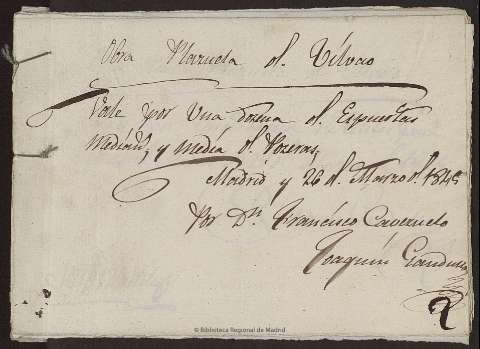 Obra Plazuela d. Vilvao
Vale por Una Dosena d. Espuertas
Median.s, y media d. Terreras,
Madrid y 26 d. Marzo d. 1845
Por D.n Francisco Caveruelo
Joaquin
2
© Biblioteca Regional de Madrid